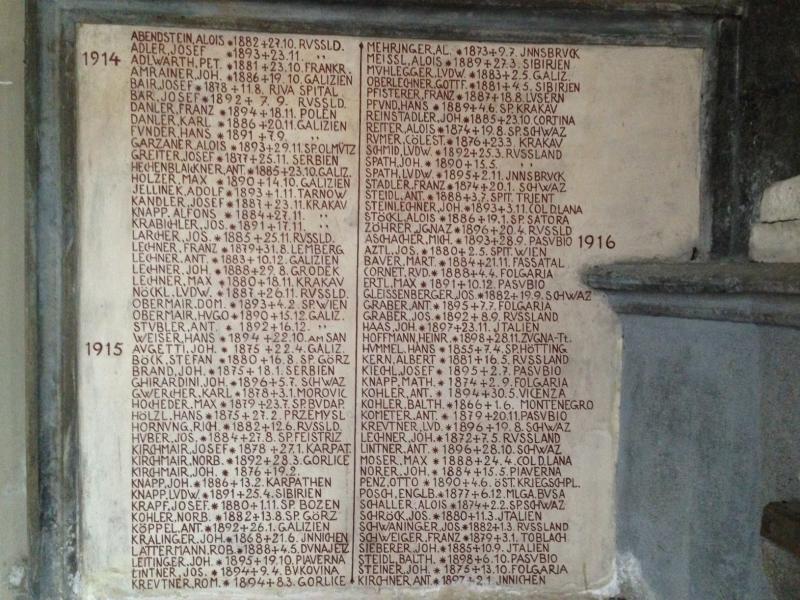 ABENDSTEIN, ALOIS *1882+27.10. RVSSLD.
1914 ADLER, JOSEF *1893+23.11. ,,
ADLWARTH, PET. *1881+23.10. FRANKR.
AMRAINER, JOH. *1886+19.10. GALIZIEN
BAR, JOSEF *1878+11.8. RIVA SPITAL
BAR, JOSEF *1892+7.9. RVSSLD.
DANLER, FRANZ *1894+18.11. POLEN
DANLER, KARL *1886+20.11. GALIZIEN
FVNDER, HANS *1891+7.9. ,,
GARZANER, ALOIS *1893+29.11. SP. OLMVTZ
GREITER, JOSEF *1877+25.11. SERBIEN
HECHENBLAIKNER, ANT. *1885+23.10. GALIZ.
HOLZER, MAX *1890+14.10. GALIZIEN
JELLINEK, ADOLF *1893+1.11. TARNOW
KANDLER, JOSEF *1887+23.11. KRAKAV
KNAPP, ALFONS *1884+27.11. ,,
KRABICHLER, JOS. *1891+17.11. ,,
LARCHER, JOS. *1885+25.11. RVSSLD.
LECHNER, FRANZ *1879+31.8. LEMBERG
LECHNER, ANT. *1883+10.12. GALIZIEN
LECHNER, JOH. *1888+29.8. GRODEK
LECHNER, MAX *1880+18.11. KRAKAV
NÖCKL, LVDW. *1887+26.11. RVSSLD.
OBERMAIR, DOM. *1893+4.2. SP. WIEN
OBERMAIR, HVGO *1890+15.12. GALIZ.
STVBLER, ANT. *1892+16.12. ,,
WEISER, HANS *1894+22.10. AM SAN
1915 AVGETTI, JOH. *1875+22.4. GALIZ.
BÖCK, STEFAN *1880+16.8. SP. GÖRZ
BRAND, JOH. *1875+18.1. SERBIEN
GHIRARDINI, JOH. *1896+5.7. SCHWAZ
GWERCHER, KARL *1878+3.1. MOROVIC
HOCHEDER, MAX *1879+23.7. SP. BVDAP.
HÖLZL, HANS *1875+27.2. PRZEMYSL
HORNVNG, RICH. *1882+12.6. RVSSLD.
HVBER, JOS. *1884+27.8. SP. FEISTRIZ
KIRCHMAIR, JOSEF *1878+27.1. KARPAT.
KIRCHMAIR, NORB. *1892+28.3. GORLICE
KIRCHMAIR, JOH. *1876+19.2.
KNAPP, JOH. *1886+13.2. KARPATHEN
KNAPP, LVDW. *1891+25.4. SIBIRIEN
KRAPF, JOSEF *1880+1.11. SP. BOZEN
KOHLER, NORB. *1882+13.8. SP. GÖRZ
KÖPPEL, ANT. *1892+26.1. GALIZIEN
KRALINGER, JOH. *1868+21.6. JNNICHEN
LATTERMANN, ROB. *1888+4.5. DVNAJETZ
LEITINGER, JOH. *1895+19.10. PIAVERNA
LINTNER, JOS. *1894+9.4. BVKOVINA
KREVTNER, ROM. *1894+8.3. GORLICE
MEHRINGER, AL. *1873+9.7. JNNSBRVCK
MEISSL, ALOIS *1889+27.3. SIBIRIEN
MVHLEGGER, LVDW. *1883+2.5. GALIZ.
OBERLECHNER, GOTTF. *1881+4.5. SIBIRIEN
PFISTERER, FRANZ *1887+18.8. LVSERN
PFVND, HANS *1889+4.6. SP. KRAKAV
REINSTADLER, JOH. *1885+23.10 CORTINA
REITER, ALOIS *1874+19.8. SP. SCHWAZ
RVMER, CÖLEST. *1876+23.3. KRAKAV
SCHMID, LVDW. *1892+25.3. RVSSLAND
SPATH, JOH. *1890+15.5. ,,
SPATH, LVDW. *1895+2.11. JNNSBRVCK
STADLER, FRANZ *1874+20.1. SCHWAZ
STEIDL, ANT. *1888+3.7. SPIT. TRIENT
STEINLECHNER, JOH. *1893+3.11. COL D. LANA
STÖCKL, ALOIS *1886+19.1. SP. SATORA
ZÖHRER, JGNAZ *1896+20.4. RVSSLD
ASCHACHER, MICH. *1893+28.9. PASVBIO 1916
AZTL, JOS. *1880+2.5. SPIT. WIEN
BAVER, MART. *1884+21.11. FASSATAL
CORNET, RVD. *1888+4.4. FOLGARIA
ERTL, MAX *1891+10.12. PASVBIO
GLEISSENBERGER, JOS. *1882+19.9. SCHWAZ
GRABER, ANT. *1895+7.7. FOLGARIA
GRABER, JOS. *1892+8.9. RVSSLAND
HAAS, JOH. *1897+23.11. JTALIEN
HOFFMANN, HEINR. *1898+28.11. ZVGNA-Tt.
HVMMEL, HANS *1855+7.4. SP. HÖTTING
KERN, ALBERT *1881+16.5. RVSSLAND
KIECHL, JOSEF *1895+2.7. PASVBIO
KNAPP, MATH. *1874+2.9. FOLGARIA
KOHLER, ANT. *1894+30.5. VICENZA
KOHLER, BALTH. *1866+1.6. MONTENEGRO
KOMETER, ANT. *1879+20.11. PASVBIO
KREVTNER, LVD. *1896+19.8. SCHWAZ
LECHNER, JOH. *1872+7.5. RVSSLAND
LINTNER, ANT. *1896+28.10. SCHWAZ
MOSER, MAX *1888+24.4. COL D. LANA
NORER, JOH. *1884+15.5. PIAVERNA
PENZ, OTTO *1890+4.6. ÖST. KRIEGSCHPL.
POSCH, ENGLB. *1877+6.12. MLGA. BVSA
SCHALLER, ALOIS *1874+2.2. SP. SCHWAZ
SCHRÖCK, JOS. *1880+11.3. JTALIEN
SCHWANINGER, JOS. *1882+1.3. RVSSLAND
SCHWEIGER, FRANZ *1879+3.1. TOBLACH
SIEBERER, JOH. *1885+10.9. JTALIEN
STEIDL, BALTH. *1898+6.10. PASVBIO
STEINER, JOH. *1875+13.10. FOLGARIA
KIRCHNER, ANT. *1897+2.1. JNNICHEN